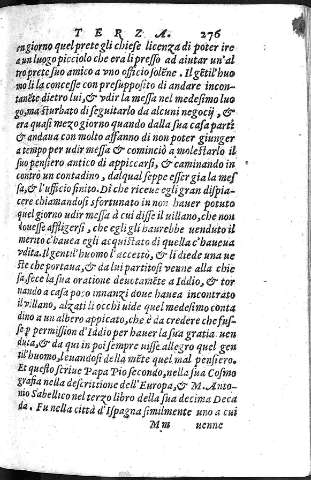 TERZA. 276
un giorno quel prete gli chiese licenza di poter ire
a un luogo picciolo che era lì presso ad aiutar un'al
tro prete suo amico a vno officio solẽne. Il gẽtil'huo
mo li la concesse con presupposito di andare incon-
tanẽte dietro lui, & vdir la messa nel medesimo luo
go, ma sturbato di seguitarlo da alcuni negocij, &
era quasi mezo giorno quando dalla sua casa partì
& andaua con molto affanno di non poter giunger
a tempo per udir messa & cominciò a molestarlo il
suo pensiero antico di appiccarsi, & caminando in
contrò un contadino, dal qual seppe esser gia la mes
sa, & l'ufficio finito. Di che riceue egli gran dispia-
cere chiamandosi sfortunato in non hauer potuto
quel giorno udir messa à cui disse il uillano, che non
douesse affligersi, che egli gli haurebbe uenduto il
merito c'hauea egli acquistato di quella c'haueua
vdita. Il gentil'huomo l'accettò, & li diede una ue
ste che portaua, & da lui partitosi venne alla chie
sa, fece la sua oratione deuotamẽte a Iddio, & tor
nando a casa poco innanzi doue hauea incontrato
il villano, alzati li occhi uide quel medesimo conta
dino a un albero apicato, che è da credere che fus-
se ꝑ permission d'Iddio per hauer la sua gratia uen
duta, & da qui in poi sempre uisse allegro quel gen
til'huomo, leuandosi della mẽte quel mal pensiero.
Et questo scriue Papa Pio secondo, nella sua Cosmo
grafia nella descrittione dell'Europa, & M. Anto-
nio Sabellico nel terzo libro della sua decima Deca
da. Fu nella città d'Ispagna similmente uno a cui
Mm uenne